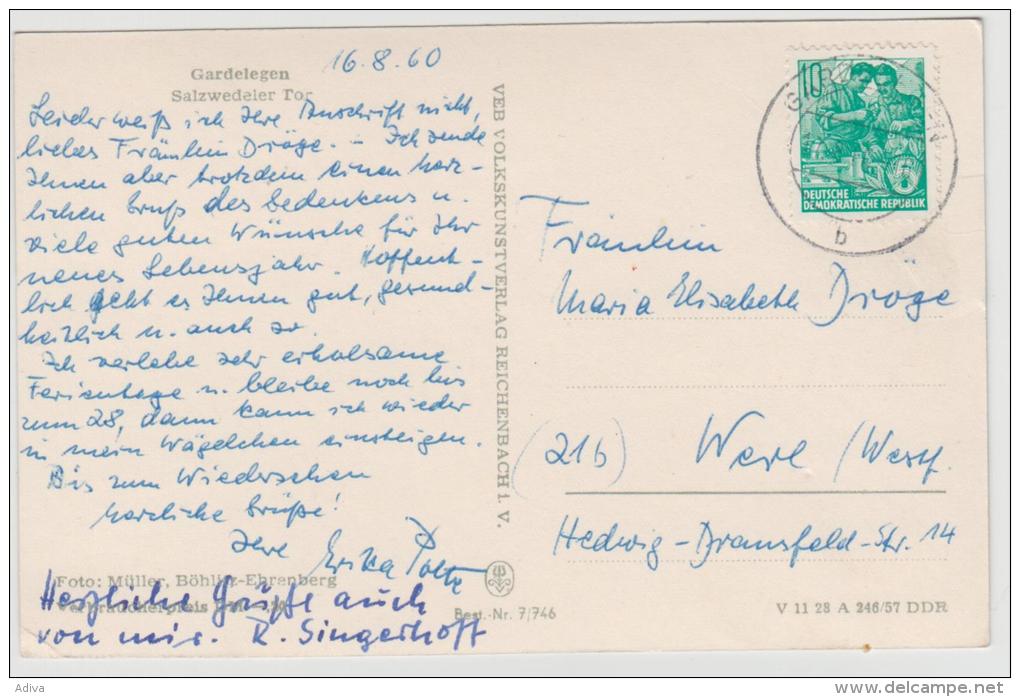 16.8.60
Gardelegen
Salzwedeler Tor
Leider weiß ich Ihre Anschrift nicht,
liebes Fräulein Dröge. - Ich sende
Ihnen aber trotzdem einen herz-
lichen Gruß des Gedenkens u.
viele guten Wünsche für Ihr
neues Lebensjahr. Hoffent-
lich geht es Ihnen gut, gesund-
heitlich u. auch so.
Ich verlebe sehr erholsame
Ferientage u. bleibe noch bis
zum 28, dann kann ich wieder
in mein Wägelchen einsteigen.
Bis zum Wiedersehen
herzliche Grüße!
Ihre Erika
Foto: Müller, Böhlitz-Ehrenberg
Verbraucherpreis
Herzliche Grüße auch
von mir. R. Singerhoff
VEB VOLKSKUNSTVERLAG REICHENBACH i. V.
Best.-Nr. 7/746
10
DEUTSCHE
DEMOKRATISCHE REPUBLIK
b
Fräulein
Maria Elisabeth Dröge
(21b) Werl /Westf.
Hedwig-Dransfeld-Str. 14
V 11 28 A 246/57 DDR
Adiva
delcampe.net